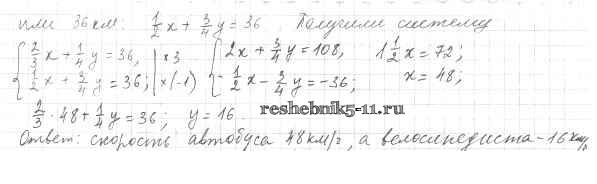 или 36 км: 1/2 x + 3/4 y = 36. Получили систему
{ 2/3 x + 1/4 y = 36, | × 3 { 2x + 3/4 y = 108, 1 1/2 x = 72;
1/2 x + 3/4 y = 36; | × (-1) - 1/2 x - 3/4 y = -36; x = 48;
2/3 · 48 + 1/4 y = 36; y = 16.
reshebnik5-11.ru
Ответ: скорость автобуса 48 км/г, а велосипедиста - 16 км/г